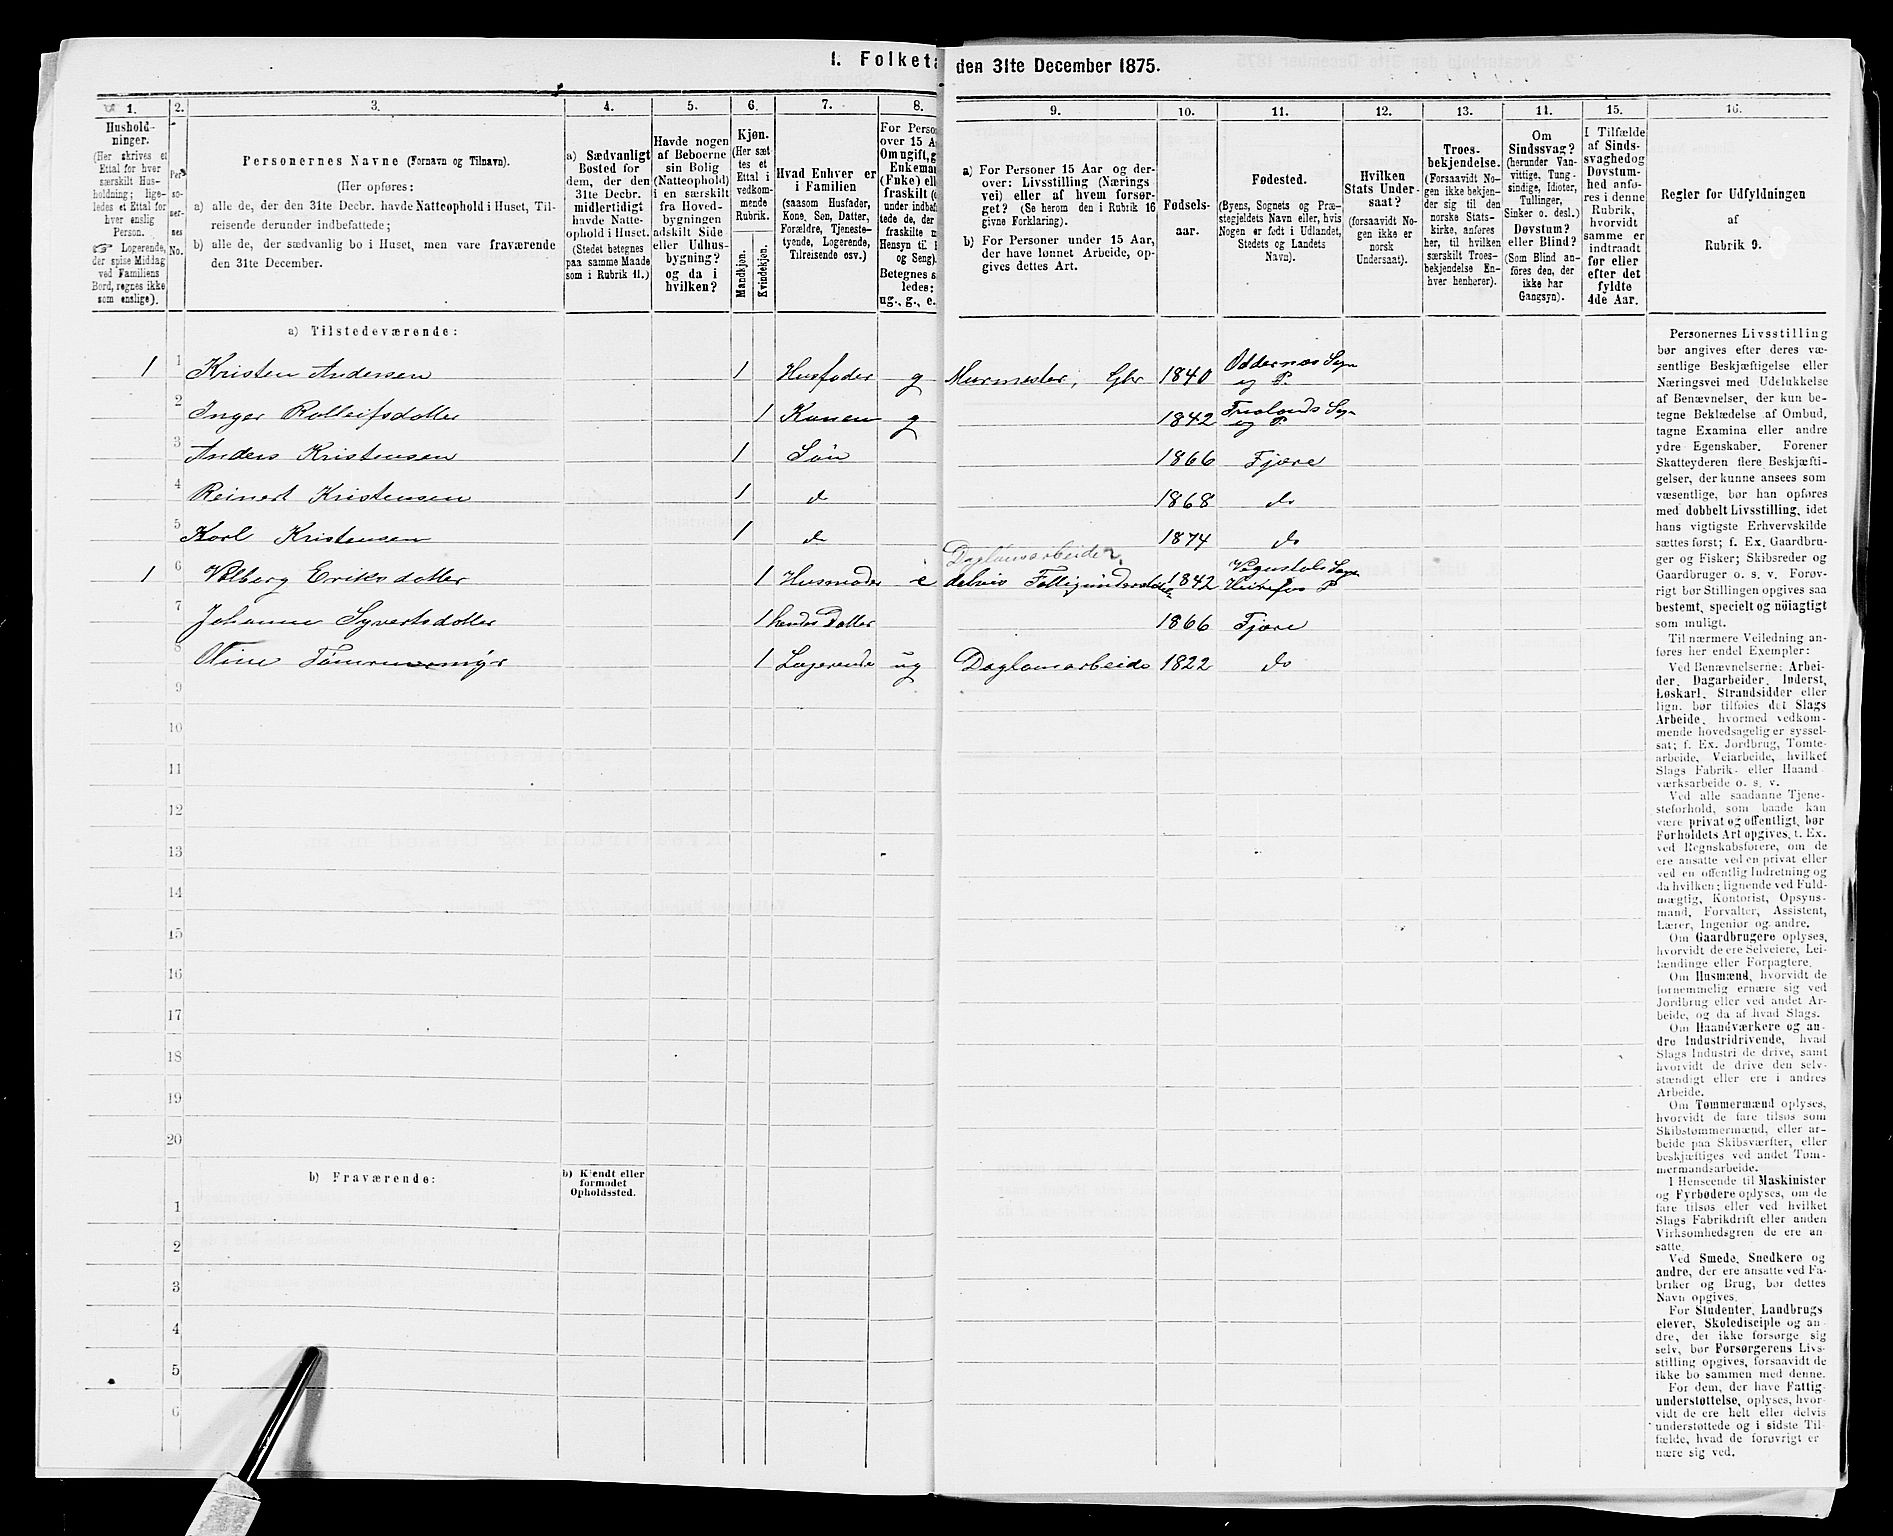 I. Folketæ
den 31te December 1875.
1. 2. 3. 4. 5. 6. 7. 8. 9. 10. 11. 12. 13. 14. 15. 16.
Hushold-
ninger.
(Her skrives et
Ettal for hver
særskilt Hus-
holdning; lige-
ledes et Ettal for
hver enslig
Person.
☞ Logerende,
der spise Middag
ved Familiens
Bord, regnes ikke
som enslige).
Per-
so-
ner-
nes
No.
Personernes Navne (Fornavn og Tilnavn).
(Her opføres:
a) alle de, der den 31te Decbr. havde Natteophold i Huset, Til-
reisende derunder indbefattede;
b) alle de, der sædvanlig bo i Huset, men vare fraværende
den 31te December.
a) Sædvanligt
Bosted for
dem, der den
31te Decbr.
midlertidigt
havde Natte-
ophold i Huset.
(Stedet betegnes
paa samme Maade
som i Rubrik 11.)
Havde nogen
af Beboerne
sin Bolig
(Natteophold)
i en særskilt
fra Hoved-
bygningen
adskilt Side
eller Udhus-
bygning?
og da i
hvilken?
Kjøn.
(Her sæt-
tes et
Ettal i
vedkom-
mende
Rubrik.
Mandkjøn.
Kvindekjøn.
Hvad Enhver er
i Familien
(saasom Husfader,
Kone, Søn, Datter,
Forældre, Tjeneste-
tyende, Logerende,
Tilreisende osv.)
For Perso
over 15 A
Om ugift, g
Enkeman
(Enke) ell
fraskilt (
under indbef
tede de, der
fraskilte m
Hensyn til
og Seng).
Betegnes s
ledes:
ug., g., e.
a) For Personer 15 Aar og der-
over: Livsstilling (Nærings
vei) eller af hvem forsør-
get? (Se herom den i Rubrik 16
givne Forklaring).
b) For Personer under 15 Aar,
der have lønnet Arbeide, op-
gives dettes Art.
Fødsels-
aar.
Fødested.
(Byens, Sognets og Præ-
stegjeldets Navn eller, hvis
Nogen er født i Udlandet,
Stedets og Landets
Navn).
Hvilken
Stats Under-
saat?
(forsaavidt No-
gen ikke er
norsk
Undersaat).
Troes-
bekjendelse.
(Forsaavidt No-
gen ikke bekjen-
der sig til den
norske Stats-
kirke, anføres
her, til hvilken
særskilt Troes-
bekjendelse En-
hver henhører).
Om
Sindssvag?
(herunder Van-
vittige, Tung-
sindige, Idioter,
Tullinger,
Sinker o. desl.)
Døvstum?
eller Blind?
(Som Blind an-
føres den, der
ikke har
Gangsyn).
I Tilfælde
af Sinds-
svaghed og
Døvstum-
hed anfø-
res i denne
Rubrik,
hvorvidt
samme er
indtraadt
før eller
efter det
fyldte
4de Aar.
Regler for Udfyldningen
af
Rubrik 9.
a) Tilstedeværende:
1 1 Kristen Andersen 1 Husfader g Murmester, Gbr 1840 Oddernæs Sogn
og P.
2 Inger Rolleifsdatter 1 Konen g 1842 Sogn
og P
3 Anders Kristensen 1 Søn 1866 Fjære
4 Reinert Kristensen 1 d 1868 do
5 Karl Kristensen 1 d 1874 do
Daglønsarbeider
1 6 Valberg Eriksdatter 1 Husmoder e delvis 1842 Vegusdal Sogn
P
7 Johanne Syvertsdatter 1 hendes Datter 1866 Fjære
8 Oline 1 Logerende ug Daglønsarbeide 1822 do
9
10
11
12
13
14
15
16
17
18
19
20
b) Fraværende:
b) Kjendt eller
formodet
Opholdssted.
1
2
3
4
5
6
Personernes Livsstilling
bør angives efter deres væ-
sentlige Beskjæftigelse eller
Næringsvei med Udelukkelse
af Benævnelser, der kun be-
tegne Beklædelse af Ombud,
tagne Examina eller andre
ydre Egenskaber. Forener
Skatteyderen flere Beskjæfti-
gelser, der kunne ansees som
væsentlige, bør han opføres
med dobbelt Livsstilling, idet
hans vigtigste Erhvervskilde
sættes først; f. Ex. Gaardbru-
ger og Fisker; Skibsreder og
Gaardbruger o. s. v. Forøv-
rigt bør Stillingen opgives saa
bestemt, specielt og nöiagtigt
som muligt.
Til nærmere Veiledning an-
føres her endel Exempler:
Ved Benævnelserne: Arbei-
der, Dagarbeider, Inderst,
Løskarl, Strandsidder eller
lign. bør tilføies det Slags
Arbeide, hvormed vedkom-
mende hovedsagelig er syssel-
sat; f. Ex. Jordbrug, Tomte-
arbeide, Veiarbeide, hvilket
Slags Fabrik- eller Haand-
værksarbeide o. s. v.
Ved alle saadanne Tjene-
steforhold, som baade kan
være privat og offentligt, bør
Forholdets Art opgives, t. Ex.
ved Regnskabsførere, om de
ere ansatte ved en privat eller
ved en offentlig Indretning og
da hvilken; lignende ved Fuld-
mægtig, Kontorist, Opsyns-
mand, Forvalter, Assistent,
Lærer, Ingeniør og andre.
Om Gaardbrugere oplyses,
hvorvidt de ere Selveiere, Lei-
lændinge eller Forpagtere.
Om Husmænd, hvorvidt de
fornemmelig ernære sig ved
Jordbrug eller ved andet Ar-
beide, og da af hvad Slags.
Om Haandværkere og an-
dre Industridrivende, hvad
Slags Industri de drive, samt
hvorvidt de drive den selv-
stændigt eller ere i andres
Arbeide.
Om Tømmermænd oplyses,
hvorvidt de fare tilsøs som
Skibstømmermænd, eller ar-
beide paa Skibsværfter, eller
beskjæftiges ved andet Tøm-
mermandsarbeide.
I Henseende til Maskinister
og Fyrbødere oplyses, om de
fare tilsøs eller ved hvilket
Slags Fabrikdrift eller anden
Virksomhedsgren de ere an-
satte.
Ved Smede, Snedkere og
andre, der ere ansatte ved Fa-
briker og Brug, bør dettes
Navn opgives.
For Studenter, Landbrugs
elever, Skoledisciple og an-
dre, der ikke forsørge sig
selv, bør Forsørgerens Livs-
stilling opgives, forsaavidt de
ikke bo sammen med denne.
For dem, der have Fattig-
understøttelse, oplyses, hvor-
vidt de ere helt eller delvis
understøttede og i sidste Til-
fælde, hvad de forøvrigt er
nære sig ved.